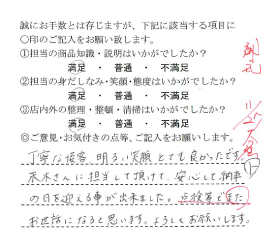 誠にお手数とは存じますが、下記に該当する項目に
○印のご記入をお願い致します。
①担当の商品知識・説明はいかがでしたか?
満足 ・ 普通 ・ 不満足
②担当の身だしなみ・笑顔・態度はいかがでしたか?
満足 ・ 普通 ・ 不満足
③店内外の整理・整頓・清掃はいかがでしたか?
満足 ・ 普通 ・ 不満足
◎ご意見・お気付きの点等、ご記入をお願いします。
丁寧な接客、明るい笑顔とても良かったです。
さんに担当して頂けて、安心して納車
の日を迎える事が出来ました。点検等でまた
お世話になると思います。よろしくお願いします。